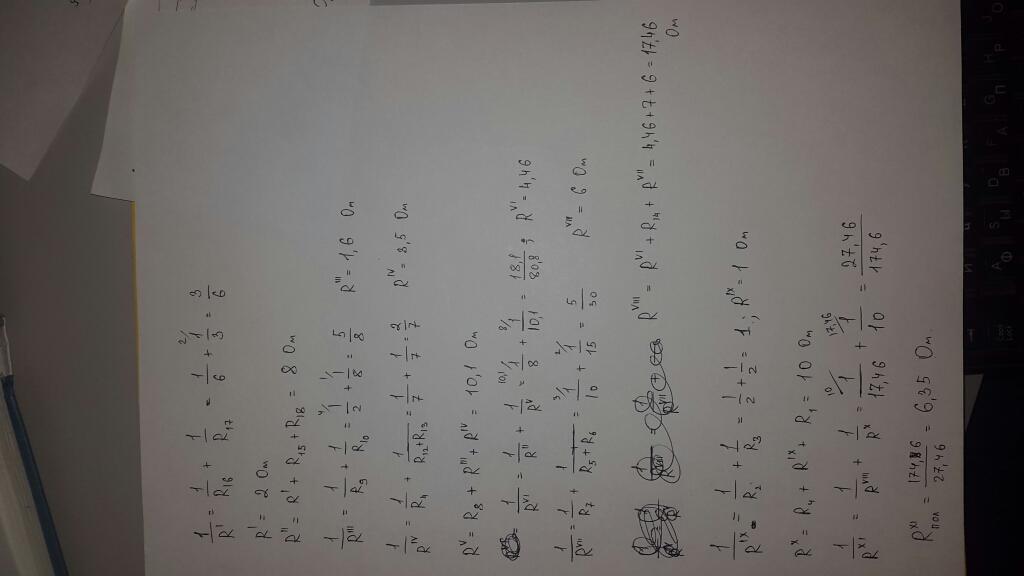 1/R^I = 1/R16 + 1/R17 = 1/6 + 1/3 = 3/6
R^I = 2 Ом
R^II = R^I + R15 + R18 = 8 Ом
1/R^III = 1/R9 + 1/R10 = 1/2 + 1/8 = 5/8 R^III = 1,6 Ом
1/R^IV = 1/R11 + 1/(R12+R13) = 1/7 + 1/7 = 2/7 R^IV = 3,5 Ом
R^V = R8 + R^III + R^IV = 10,1 Ом
1/R^VI = 1/R^II + 1/R^V = 1/8 + 1/10,1 = 18,1/80,8 ; R^VI = 4,46
1/R^VII = 1/R7 + 1/(R5+R6) = 1/10 + 1/15 = 5/30 R^VII = 6 Ом
R^VIII = R^VI + R14 + R^VII = 4,46 + 7 + 6 = 17,46 Ом
1/R^IX = 1/R2 + 1/R3 = 1/2 + 1/2 = 1 ; R^IX = 1 Ом
R^X = R4 + R^IX + R1 = 10 Ом
1/R^XI = 1/R^VIII + 1/R^X = 1/17,46 + 1/10 = 27,46/174,6
R^XI пол = 174,6/27,46 = 6,35 Ом.